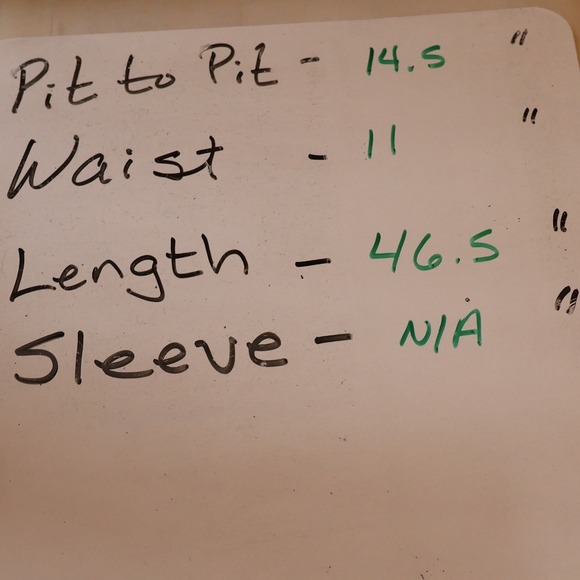 Pit to Pit - 14.5 "
Waist - 11 "
Length - 46.5 "
Sleeve - N/A "